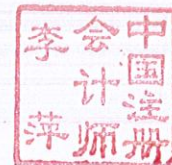 中国注册
会计师
李萍